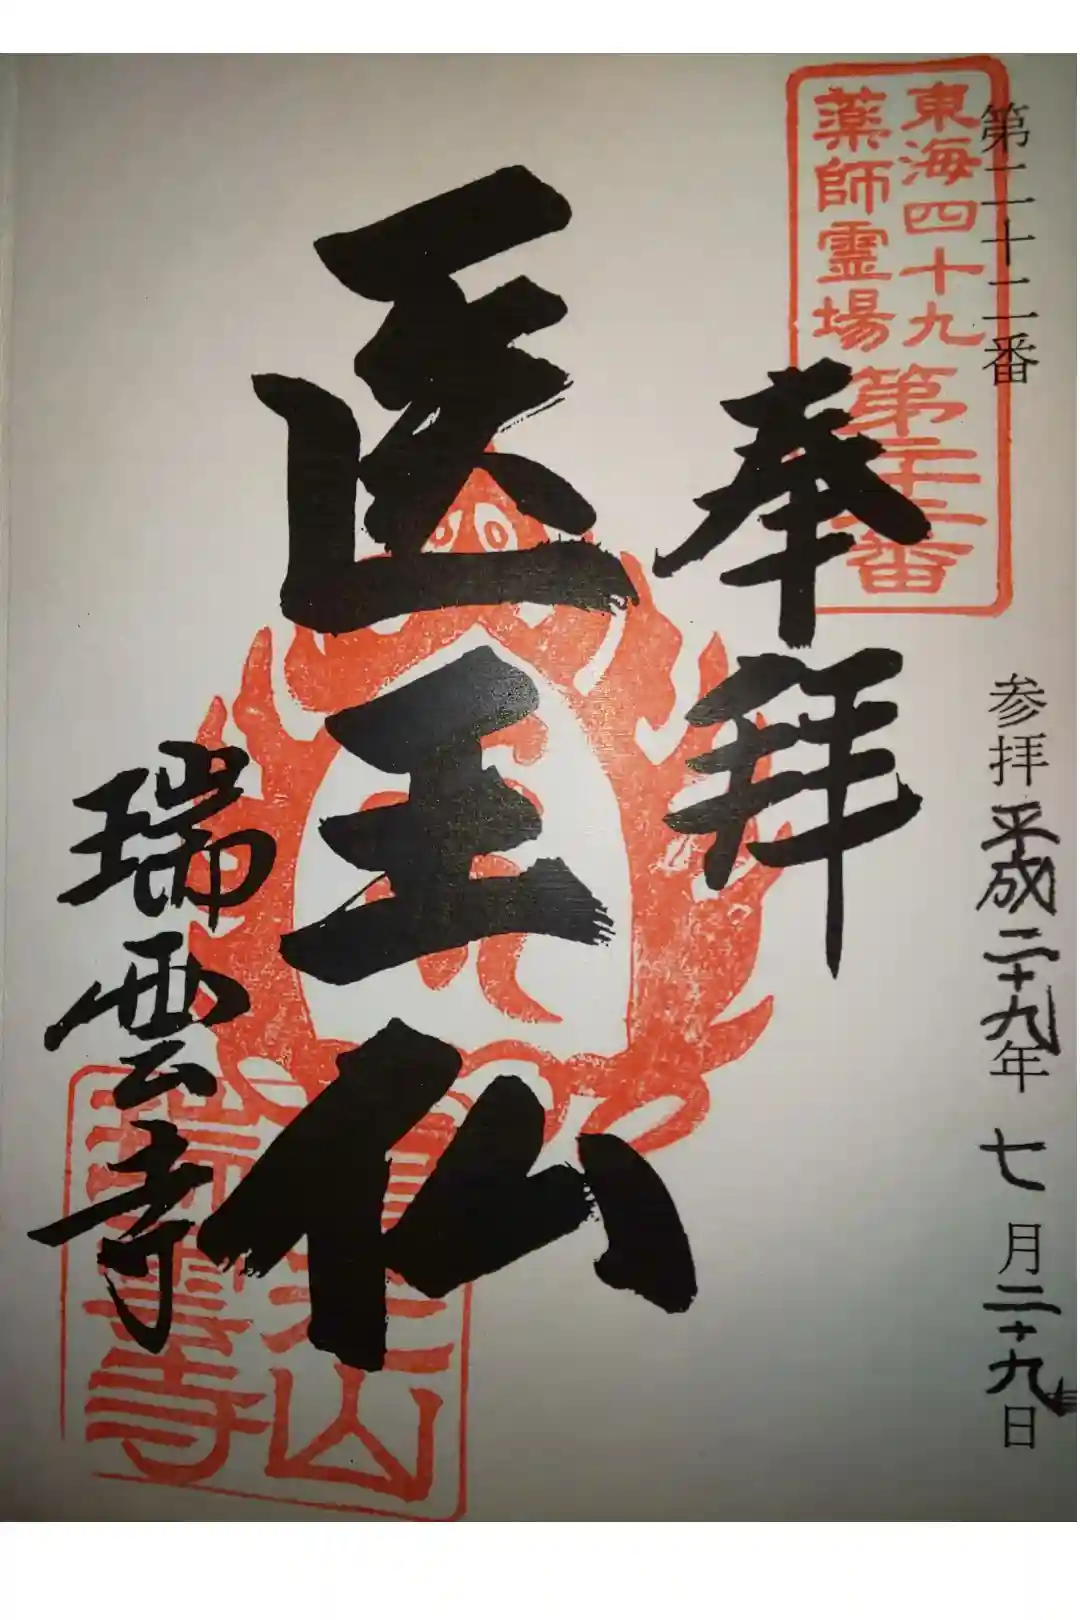 第二十二番
参拝平成二十九年七月二十九日
東海四十九
薬師霊場
第二十二番
奉拝
医王仏
瑞雲寺
山
瑞雲寺